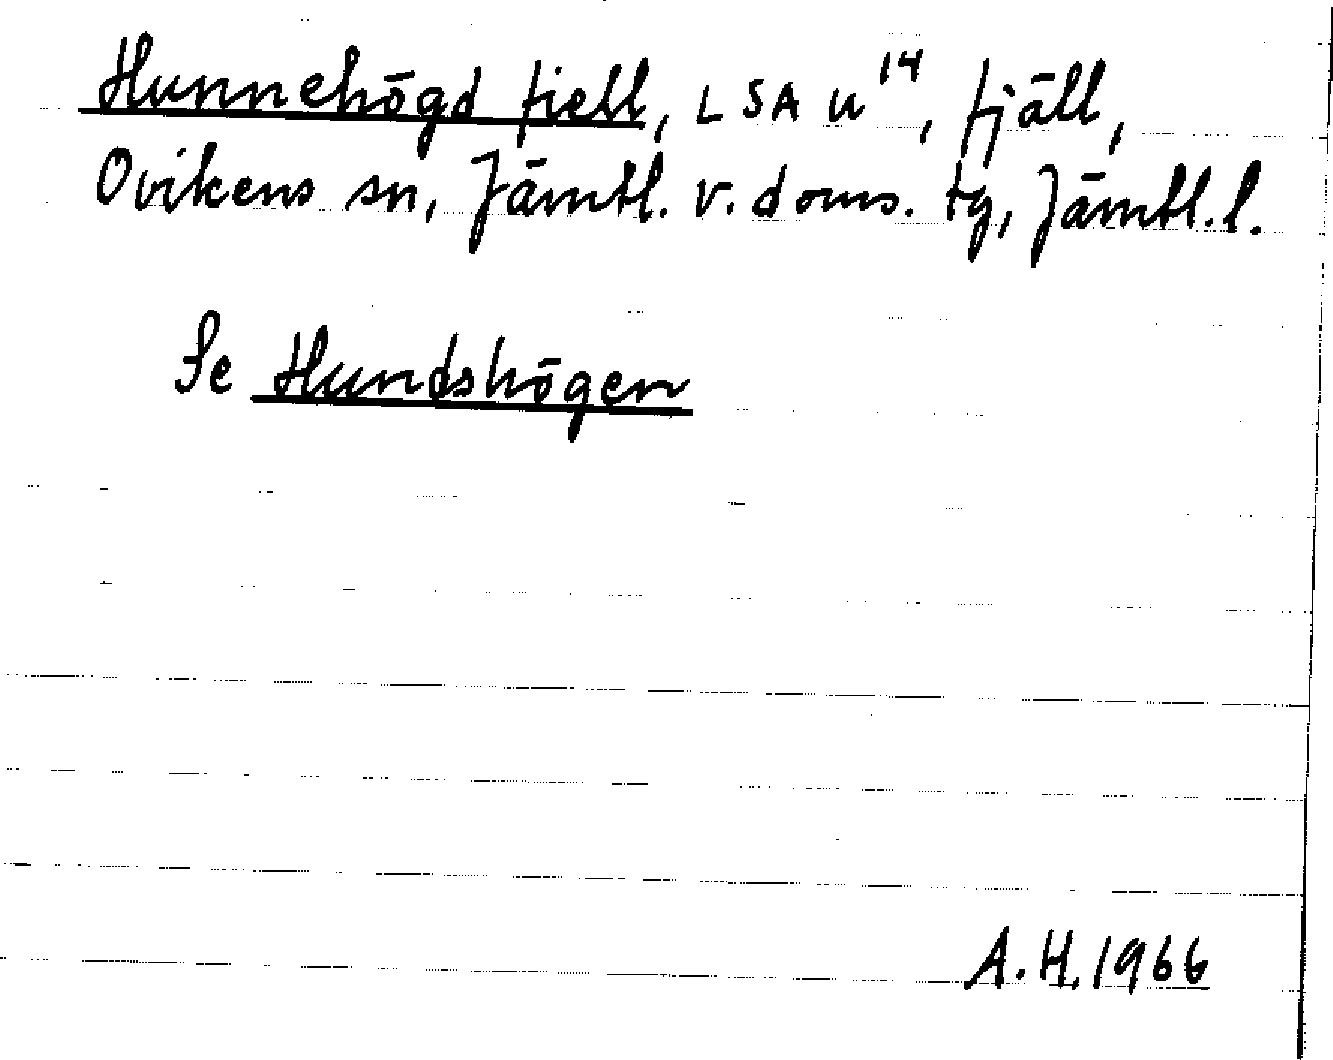 Hunnehögd fiell, LSA u¹⁴, fjäll,
Ovikens sn, Jämtl. v. doms. tg, Jämtl. l.
Se Hundshögen
A.H. 1966